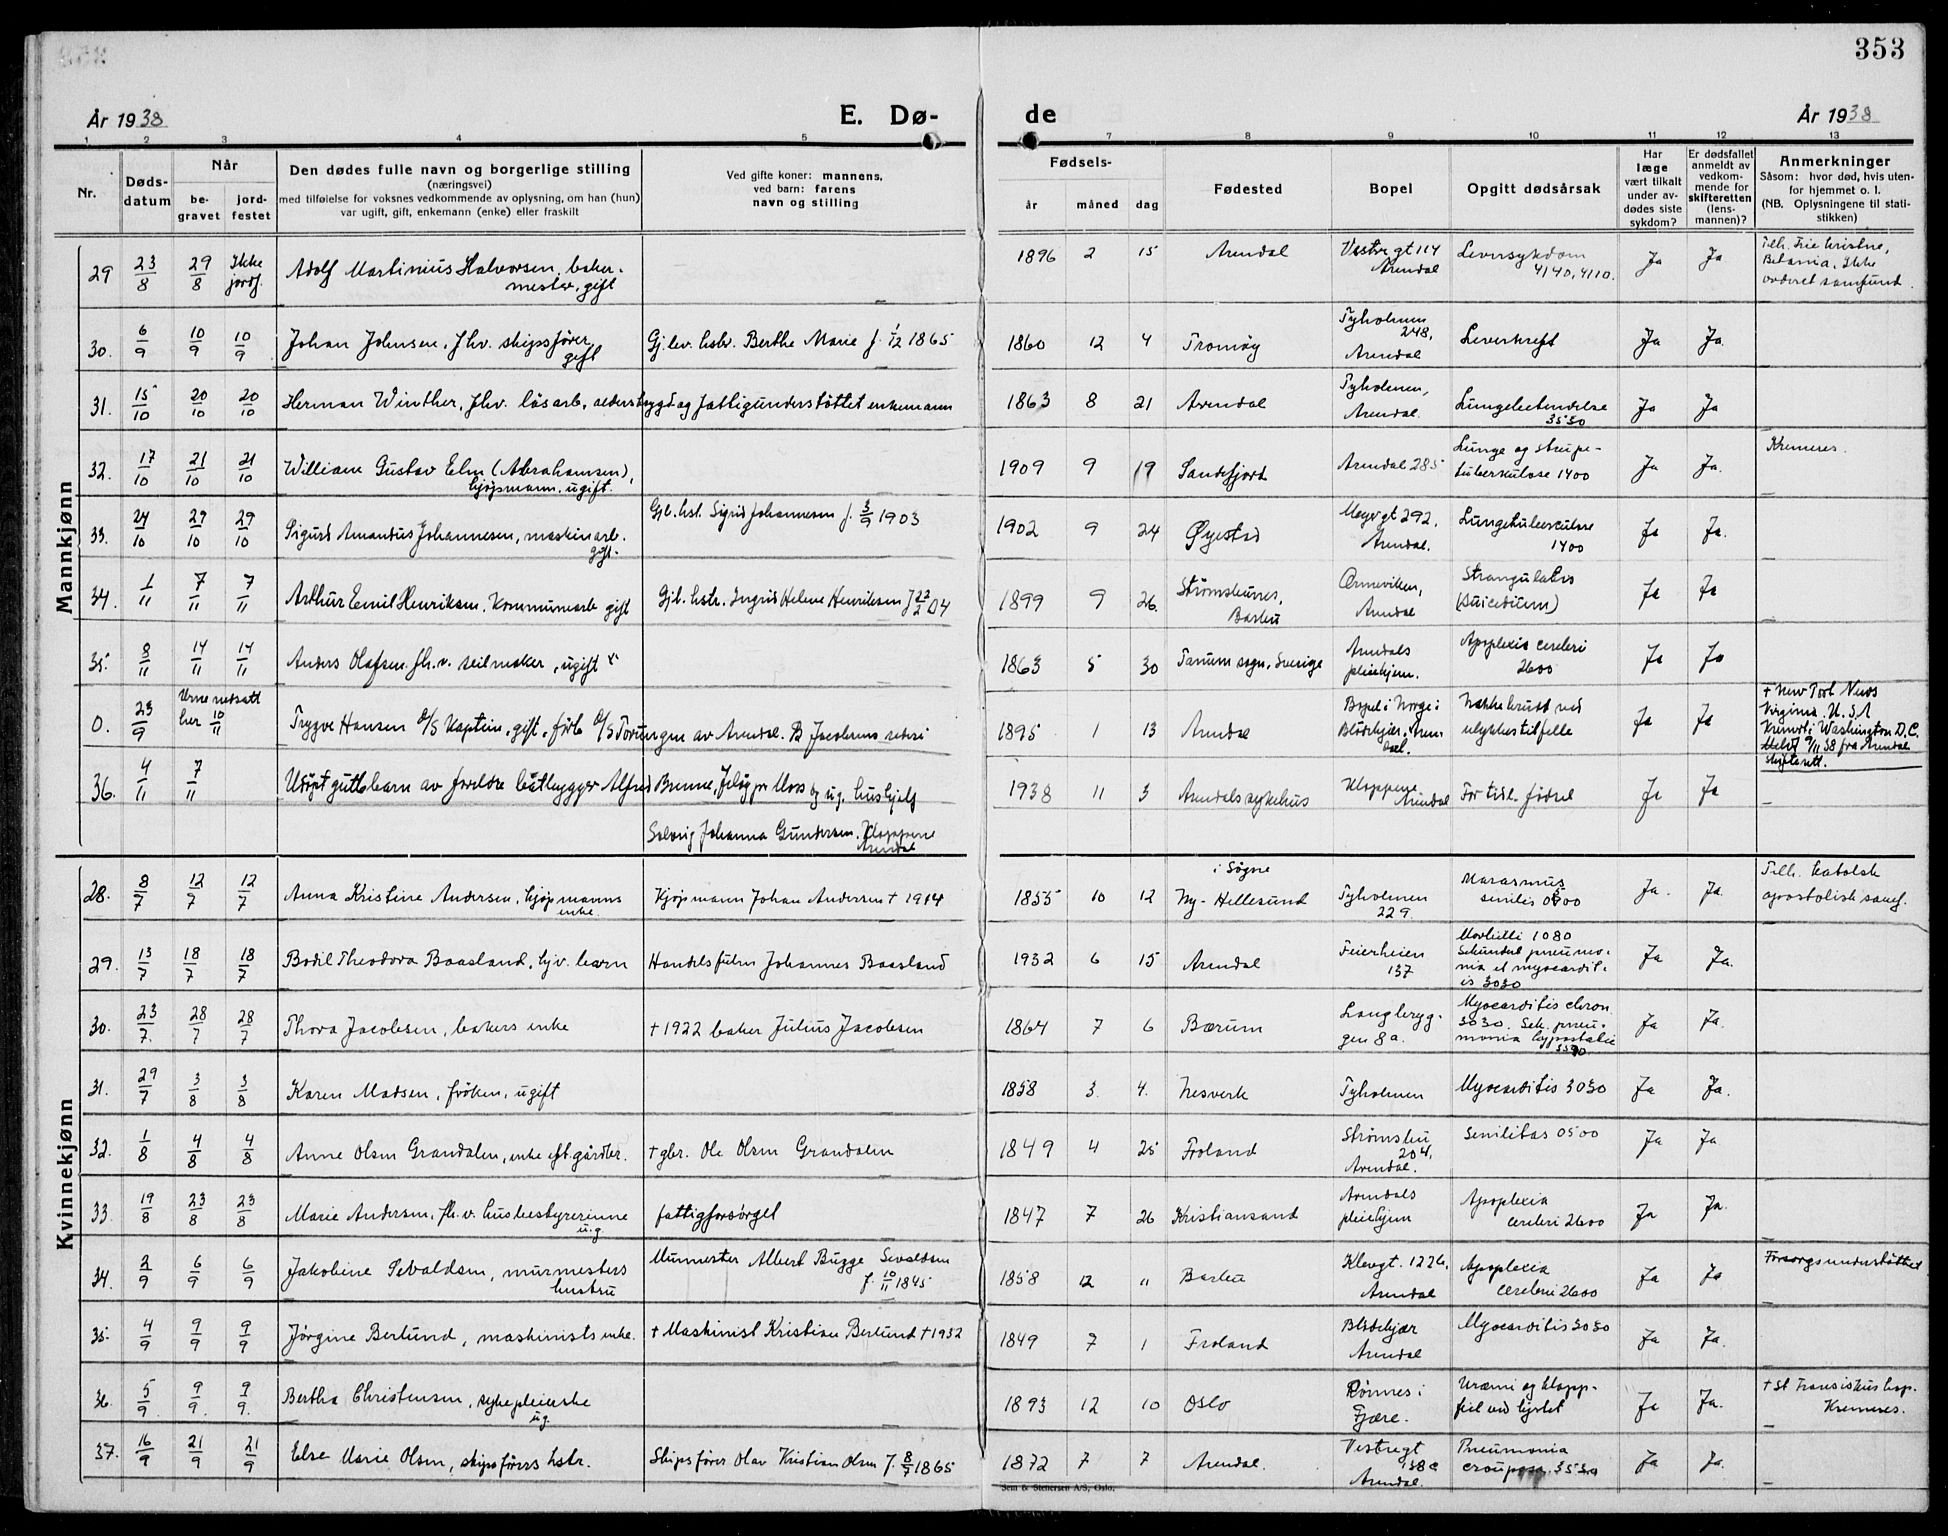 353
År 1938 E. Dø- de År 1938
1 2 3 4 5 7 8 9 10 11 12 13
Nr. Døds-datum Når be-gravet jord-festet
Den dødes fulle navn og borgerlige stilling
(næringsvei)
med tilføielse for voksnes vedkommende av oplysning, om han (hun)
var ugift, gift, enkemann (enke) eller fraskilt
Ved gifte koner: mannens,
ved barn: farens
navn og stilling
Fødsels- år måned dag
Fødested
Bopel
Opgitt dødsårsak
Har læge vært tilkalt under av-dødes siste sykdom?
Er dødsfallet anmeldt av vedkom-mende for skifteretten (lens-mannen)?
Anmerkninger
Såsom: hvor død, hvis uten-
for hjemmet o. l.
(NB. Oplysningene til stati-
stikken)
Mannkjønn
29 23/8 29/8 Ikke jordf. Adolf Martinius Halvorsen, baker-mester, gift 1896 2 15 Arendal Vestregt 114 Arendal Leversykdom 4140, 4110. Ja Ja Tilh. Frie kristne, Betania. Ikke ordnet samfund.
30. 6/9 10/9 10/9 Johan Johnsen, fhv. skipsfører, gift Gj.lev. hstr. Berthe Marie f. 1/12 1865 1860 12 4 Tromøy Tyholmen 248, Arendal Leverkreft Ja Ja
31. 15/10 20/10 20/10 Herman Winther, fhv. løsarb, alderstrygd og fattigunderstøttet enkemann 1863 8 21 Arendal Tyholmen, Arendal. Lungebetendelse 3550 Ja Ja
32. 17/10 21/10 21/10 William Gustav Elm (Abrahamsen), kjøpmann, ugift. 1909 9 19 Sandefjord Arendal 285 Lunge og strupe-tuberkulose 1400 Ja Ja. Kremeres.
33. 24/10 29/10 29/10 Sigurd Amandus Johannesen, maskinarb. gift. Gjl. hst. Sigrid Johannesen f. 3/9 1903 1902 9 24 Øyestad Meyergt 292, Arendal. Lungetuberculose 1400 Ja Ja.
34. 1/11 7/11 7/11 Arthur Emil Henriksen, kommunearb gift Gjl. hstr. Ingrid Helene Henriksen f 22/2 04 1899 9 26. Strømsbunes, Barbu Ormeviken, Arendal Strangulatio (Suicidium) Ja Ja
35. 8/11 14/11 14/11 Anders Olafsen fh.v. seilmaker, ugift 1863 5 30 Tanum sogn, Sverige Arendals pleiehjem. Apoplexia cerebri 2600 Ja Ja
0. 23/9 Urne nedsatt her 10/11 Trygve Hansen D/S Kaptein, gift, förb D/S Torungen av Arendal. B Jacobsens rederi 1895 1 13 Arendal Bopel i Norge: Blödekjær, Arendal. Nakkebrudd ved ulykkestilfelle Ja Ja + New Port News Virginia. U.S.A Kremert: Washington D.C. Meldt 9/11 38 fra Arendal skifterett.
36. 4/11 7/11 Udöpt guttebarn av foreldre båtbygger Alfred Brenne, Jeløy pr Moss og ug. hushjelp
Solveig Johanna Gundersen. Kloppene Arendal 1938 11 3 Arendals sykehus Kloppene Arendal For tidl. födsel Ja Ja
Kvinnekjønn
28. 8/7 12/7 12/7 Anna Kristine Andersen, kjøpmanns enke Kjøpmann Johan Andersen + 1914 1855 10 12 i Søgne Ny-Hellesund Tyholmen 229. Marasmus senilis 0500 Ja. Ja. Tilh. katolsk apostolisk samf.
29. 13/7 18/7 18/7 Bodil Theodora Baasland, hjv. barn Handelsfullm Johannes Baasland 1932 6 15 Arendal Feierheien 137 Morbilli 1080 Sekundert pneumo-nia et myocardit-is 3030 Ja Ja.
30. 23/7. 28/7 28/7 Thora Jacobsen, bakers enke + 1922 baker Julius Jacobsen 1864 7 6 Bærum Langbryg-gen 8 a. Myocarditis chron. 3030. Sek. pneu-monia hypostatic 3590 Ja Ja.
31. 29/7 3/8 3/8 Karen Madsen, frøken, ugift 1858 3. 4. Nesverk Tyholmen Myocarditis 3030 Ja Ja.
32. 1/8 4/8 4/8 Anne Olsen Grandalen, enke eft. gårdbr. + gbr. Ole Olsen Grandalen 1849 4 25 Froland Strømsbu 204, Arendal. Senilitas 0500 Ja Ja.
33. 19/8 23/8 23/8 Marie Andersen, fh.v. husbestyrerinne u.g. fattigforsørget 1847 7 26 Kristiansand Arendals pleiehjem Apoplexia cerebri 2600 Ja Ja.
34. 2/9 6/9 6/9 Jakobine Sevaldsen, murmesters hustru Murmester Albert Bugge Sevaldsen f. 10/11 1845 1858 12 " Barbu Klevgt. 122b, Arendal Apoplexia cerebri 2600 Ja Ja Forsorgsunderstøttet
35. 4/9 9/9 9/9 Jørgine Berlund, maskinists enke. + Maskinist Kristian Berlund + 1932 1849 7 1 Froland Blödekjær Arendal Myocarditis 3030 Ja Ja.
36. 5/9. 9/9. 9/9. Bertha Christensen, sykepleierske ug. 1893 12 10 Oslo Rönnes i Fjære. Uræmi og klapp-feil ved hjertet Ja Ja. + St Fransiskus hosp. Kremeres.
37. 16/9 21/9 21/9 Else Marie Olsen, skipsførers hstr. Skipsfører Olav Kristian Olsen f. 8/7 1865 1872 7 7 Arendal. Vestregt 138a Arendal. Pneumonia crouposa. 3530 Ja Ja.
Sem & Stenersen A/S, Oslo.